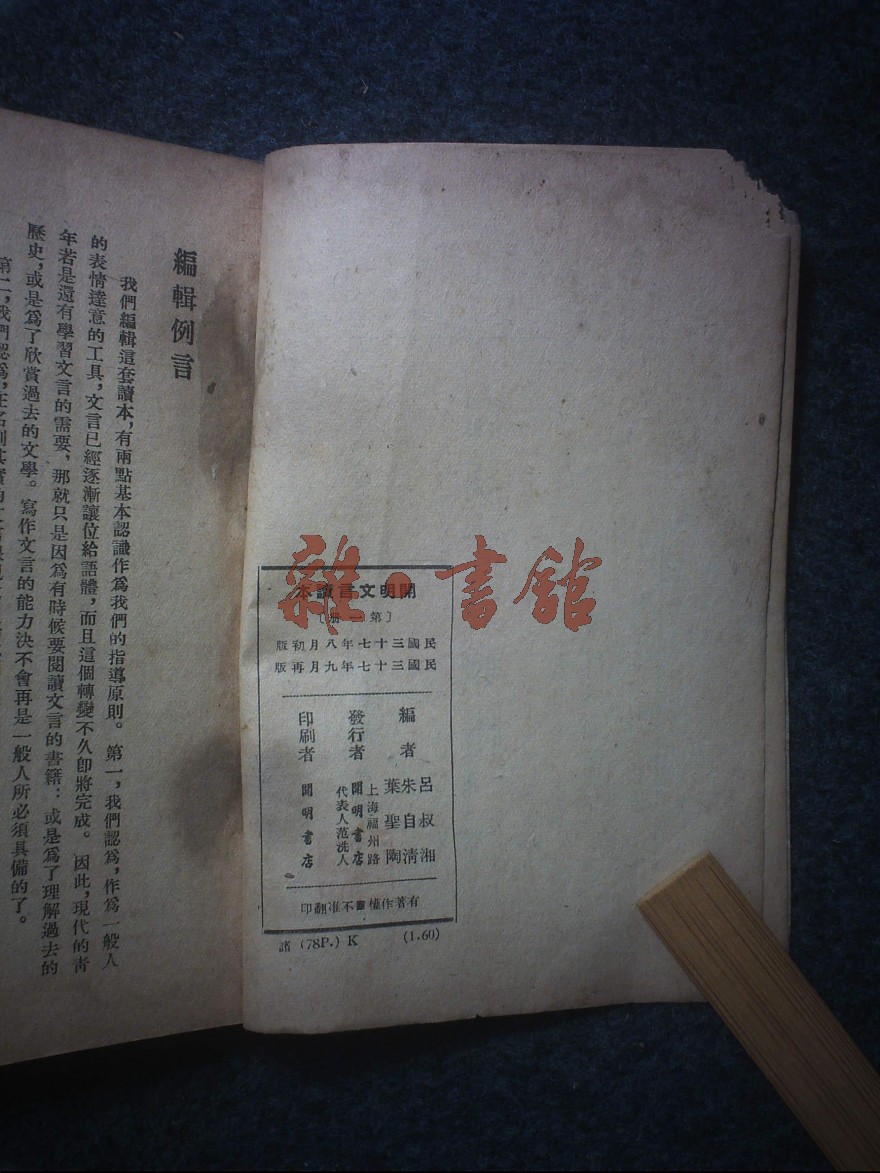 雜·書館
開明文言讀本
〔第一冊〕
民國三十七年八月初版
民國三十七年九月再版
編者
呂叔湘
朱自清
葉聖陶
發行者
上海福州路
開明書店
代表人范洗人
印刷者
開明書店
有著作權■不准翻印
諸 (78P.) K (1.60)
編輯例言
我們編輯這套讀本，有兩點基本認識作爲我們的指導原則。第一，我們認爲，作爲一般人
的表情達意的工具，文言已經逐漸讓位給語體，而且這個轉變不久卽將完成。因此，現代的靑
年若是還有學習文言的需要，那就只是因爲有時候要閱讀文言的書籍：或是爲了理解過去的
歷史，或是爲了欣賞過去的文學。寫作文言的能力決不會再是一般人所必須具備的了。
第二，我們認爲，在名副其實的